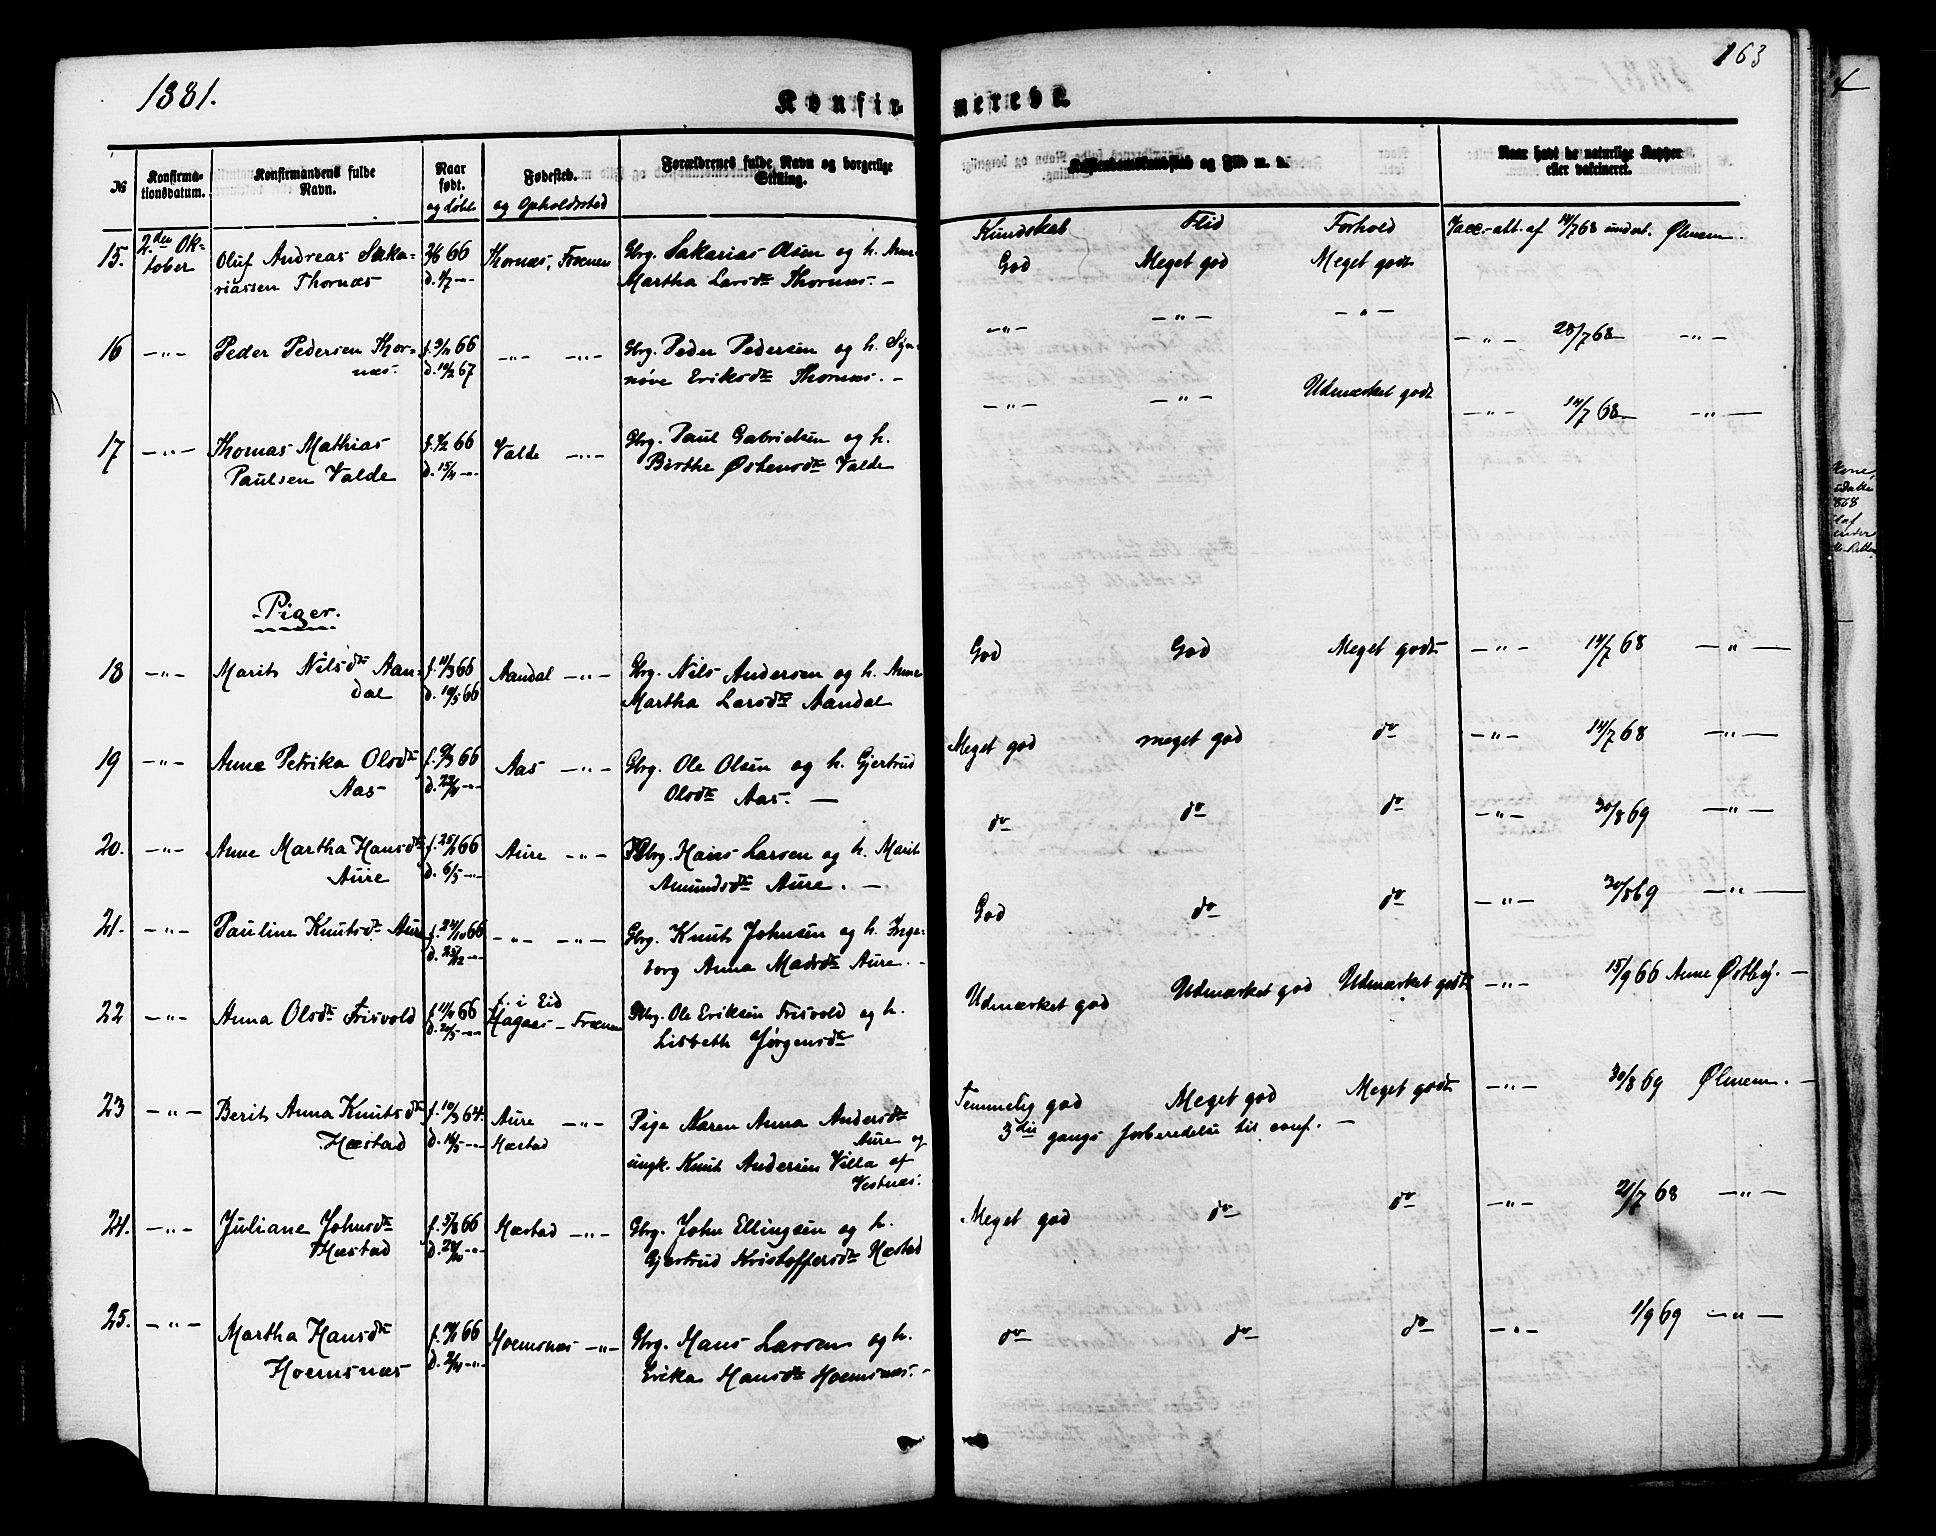 1881.
163
Konfirmerede.
№
Konfirma-
tionsdatum.
Konfirmandens fulde
Navn.
Naar
født.
og døbt
Fødested.
og Opholdssted
Forældrenes fulde Navn og borgerlige
Stilling.
Kristendomskundskab og Flid m. v.
Naar havt de naturlige Kopper
eller vakcineret.
Kundskab Flid Forhold
15. 2den Ok-
tober
Oluf Andreas Saka-
riassen Thornæs
66
Thornæs, Frænen
Gbrg. Sakarias Olsen og h. Anne
Martha Larsdtr Thornæs. —
God Meget god Meget godt
Vacc.-att. af 14/7 68 undert. Ølmem.
16 —"— Peder Pedersen Thor-
næs.
f. 9/11 66
d. 10/2 67
—"— —"—
Gbrg. Peder Pedersen og h. Syn-
nøve Eriksdtr Thornæs. —
—"— —"— —"—
—"— 28/7 68 —"—
17 —"— Thomas Mathias
Paulsen Valde
66
d. 15/4 —"—
Valde —"—
Gbrg. Paul Gabrielsen og h.
Birthe Østensdtr Valde
—"— —"— Udmærket godt
—"— 14/7 68 —"—
Piger.
18 —"— Marit Nilsdtr Aan-
dal
f. 11/3 66
d. 10/5 66
Aandal —"—
Gbrg. Nils Andersen og h. Anne
Martha Larsdtr Aandal
God God Meget godt
—"— 14/7 68 —"—
19 —"— Anne Petrika Olsdtr
Aas
f. 9/3 66
d. 22/4 —"—
Aas —"—
Gbrg. Ole Olsen og h. Gjertrud
Olsdtr Aas. —
Meget god meget god do
—"— 14/7 68 —"—
20. —"— Anne Martha Hansdtr
Aure
f. 25/1 66
d. 6/5 —"—
Aure —"—
Gbrg. Hans Larsen og h. Marit
Amundsdtr Aure. —
do do do
—"— 30/8 69 —"—
21. —"— Pauline Knutsdtr Aure
f. 24/10 66
d. 25/12 —"—
—"— —"—
Gbrg. Knut Johnsen og h. Inge-
borg Anna Madsdtr Aure. —
God do do
—"— 30/8 69 —"—
22 —"— Anna Olsdtr Frisvold
66
f. i Eid
Hagaas — Frænen
Gbrg. Ole Eriksen Frisvold og h.
Lisbeth Jørgensdtr
Udmærket god Udmærket god Udmærket godt
—"— 15/9 66 Anne Østby. —
23 —"— Berit Anna Knutsdtr
Hæstad
f. 10/3 64.
d. 16/5 —"—
Aure —"—
Hæstad
Pige Karen Anna Andersdtr
Aure og
ungk. Knut Andersen Villa af
Vestnæs.
Temmelig god Meget god Meget godt
3die gangs forberedelse til conf. —
—"— 30/8 69 Ølmem. —
24. —"— Juliane Johnsdtr
Hæstad
f. 5/8 66
Hæstad —"—
Gbrg. John Ellingsen og h.
Gjertrud Kristoffersdtr Hæstad
Meget god do do
—"— 21/7 68 —"—
25. —"— Martha Hansdtr
Hoemsnæs
66
d. 2/4 —"—
Hoemsnæs —"—
Gbrg. Hans Larsen og h.
Erika Hansdtr Hoemsnæs. —
do do do
—"— 1/9 69 —"—